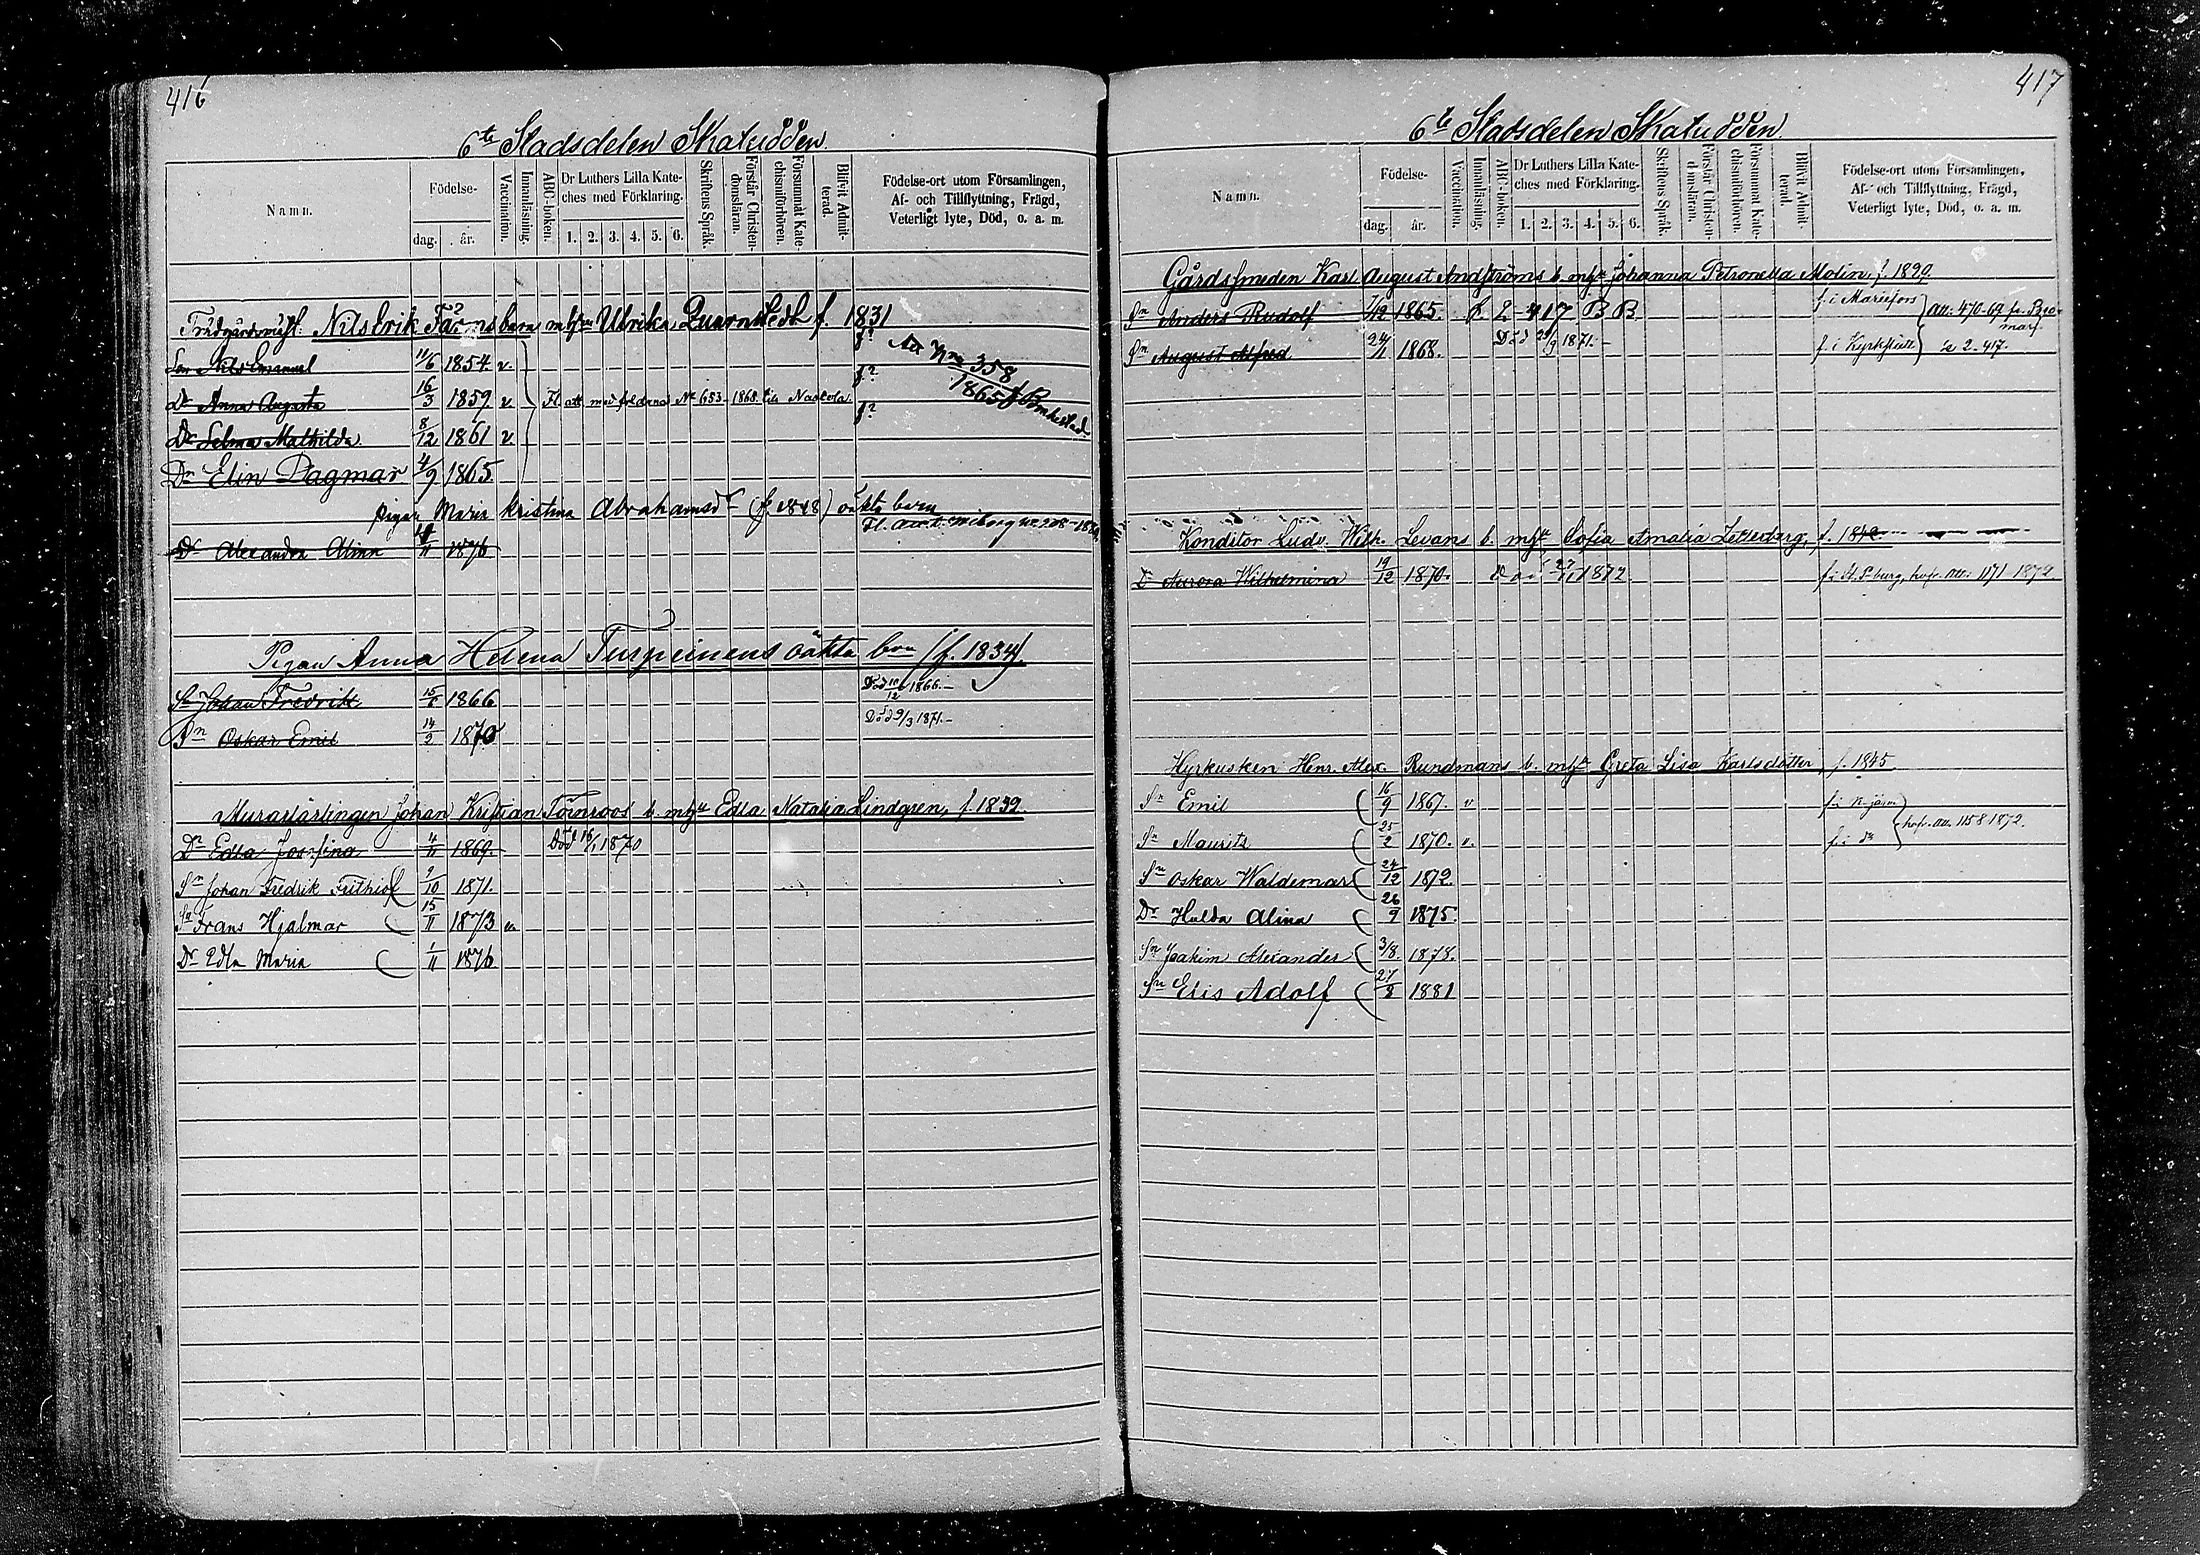 416
6te Stadsdelen Skatudden
Namn.
Födelse-
dag. år.
Vaccination.
Innanläsning.
ABC-boken.
Dr Luthers Lilla Kate-
ches med Förklaring.
1. 2. 3. 4. 5. 6.
Skriftens Språk.
Förstår Christen-
domsläran.
Försummat Kate-
chismiförhören.
Blifvit Admit-
terad.
Födelse-ort utom Församlingen,
Af- och Tillflyttning, Frägd,
Veterligt lyte, Död, o. a. m.
Nils Erik barn m hu Ulrika f. 1831
Son Nils Emanuel 11/6 1854 v. f?
Dr Anna Augusta 16/3 1859 v. Fl. att med föräldrarne No 653 1868 till Nastola f?
Att No 358
1865 f
Dr Selma Mathilda 8/12 1861 v. f?
Dr Elin Dagmar 4/9 1865
Pigan Maria Kristina Abrahamsdr (f. 1848) oäkta barn
Dr Alexandra Alina 1876 Fl. Wiborg
Pigan Anna Helena Turpeinens oäkta barn (f. 1834)
Sn Johan Fredrik 1866 Död 10/12 1866.
Sn Oskar Emil 14/2 1870 Död 9/3 1871.
Murarlärlingen Johan Kristian Törnroos b. m hu Edla Natalia Lindgren, f. 1839
Dr Edla Josefina 4/11 1869. Död 16/1 1870
Sn Johan Fredrik Frithiof 9/10 1871.
Sn Frans Hjalmar 15/11 1873 v.
Dr Edla Maria 1/11 1876
417
6te Stadsdelen Skatudden
Namn.
Födelse-
dag. år.
Vaccination.
Innanläsning.
ABC-boken.
Dr Luthers Lilla Kate-
ches med Förklaring.
1. 2. 3. 4. 5. 6.
Skriftens Språk.
Förstår Christen-
domsläran.
Försummat Kate-
chismiförhören.
Blifvit Admit-
terad.
Födelse-ort utom Församlingen,
Af- och Tillflyttning, Frägd,
Veterligt lyte, Död, o. a. m.
Gårdssmeden Karl August Andströms b. m hu Johanna Petronella Molin, f. 1829
Sn Anders Rudolf 7/12 1865. f. 2-417 B B f. i Mariefors
att: 470-69 fr. Bro-
marf
Sn August Alfred 24/11 1868. Död 1871. f. i Kyrkslätt s. 2. 417.
Konditor Ludv. Wilh. Levans b. m hu Sofia Amalia Zetterberg, f.
Dr Aurora Wilhelmina 19/12 1870. Död 27/11 1872 f. i St. P-burg, hofr. att: 1171 1872
Hyrkusken Henr. Alex. Rundmans b. m hu Greta Lisa Karlsdotter, f. 1845.
Sn Emil 16/9 1867. v f. i
hofr. att. 1158 1872.
Sn Maurits 25/2 1870. v. f. i do
Sn Oskar Waldemar 24/12 1872.
Dr Hulda Alina 26/9 1875.
Sn Joakim Alexander 3/8 1878.
Sn Elis Adolf 27/8 1881